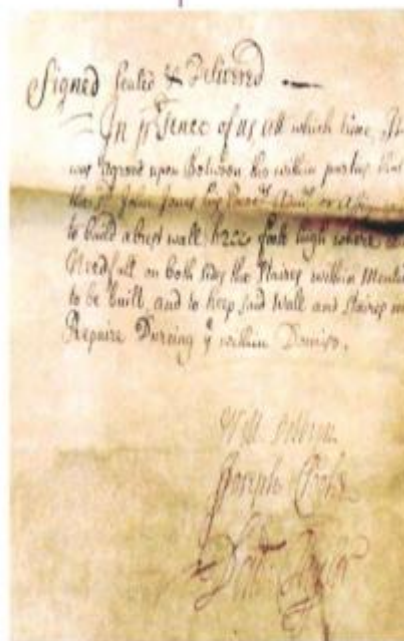 Signed Sealed & Delivered
In prsence of us att which time, It
was Agreed upon Between the within partys that
the sd John Jones his Execrs Admrs or
to build a brest wall three foote high where
Needfull on both sides the Staires within
to be built and to keep said Wall and Staires
Repaire Dureing ye within Demise.
Joseph Cooke